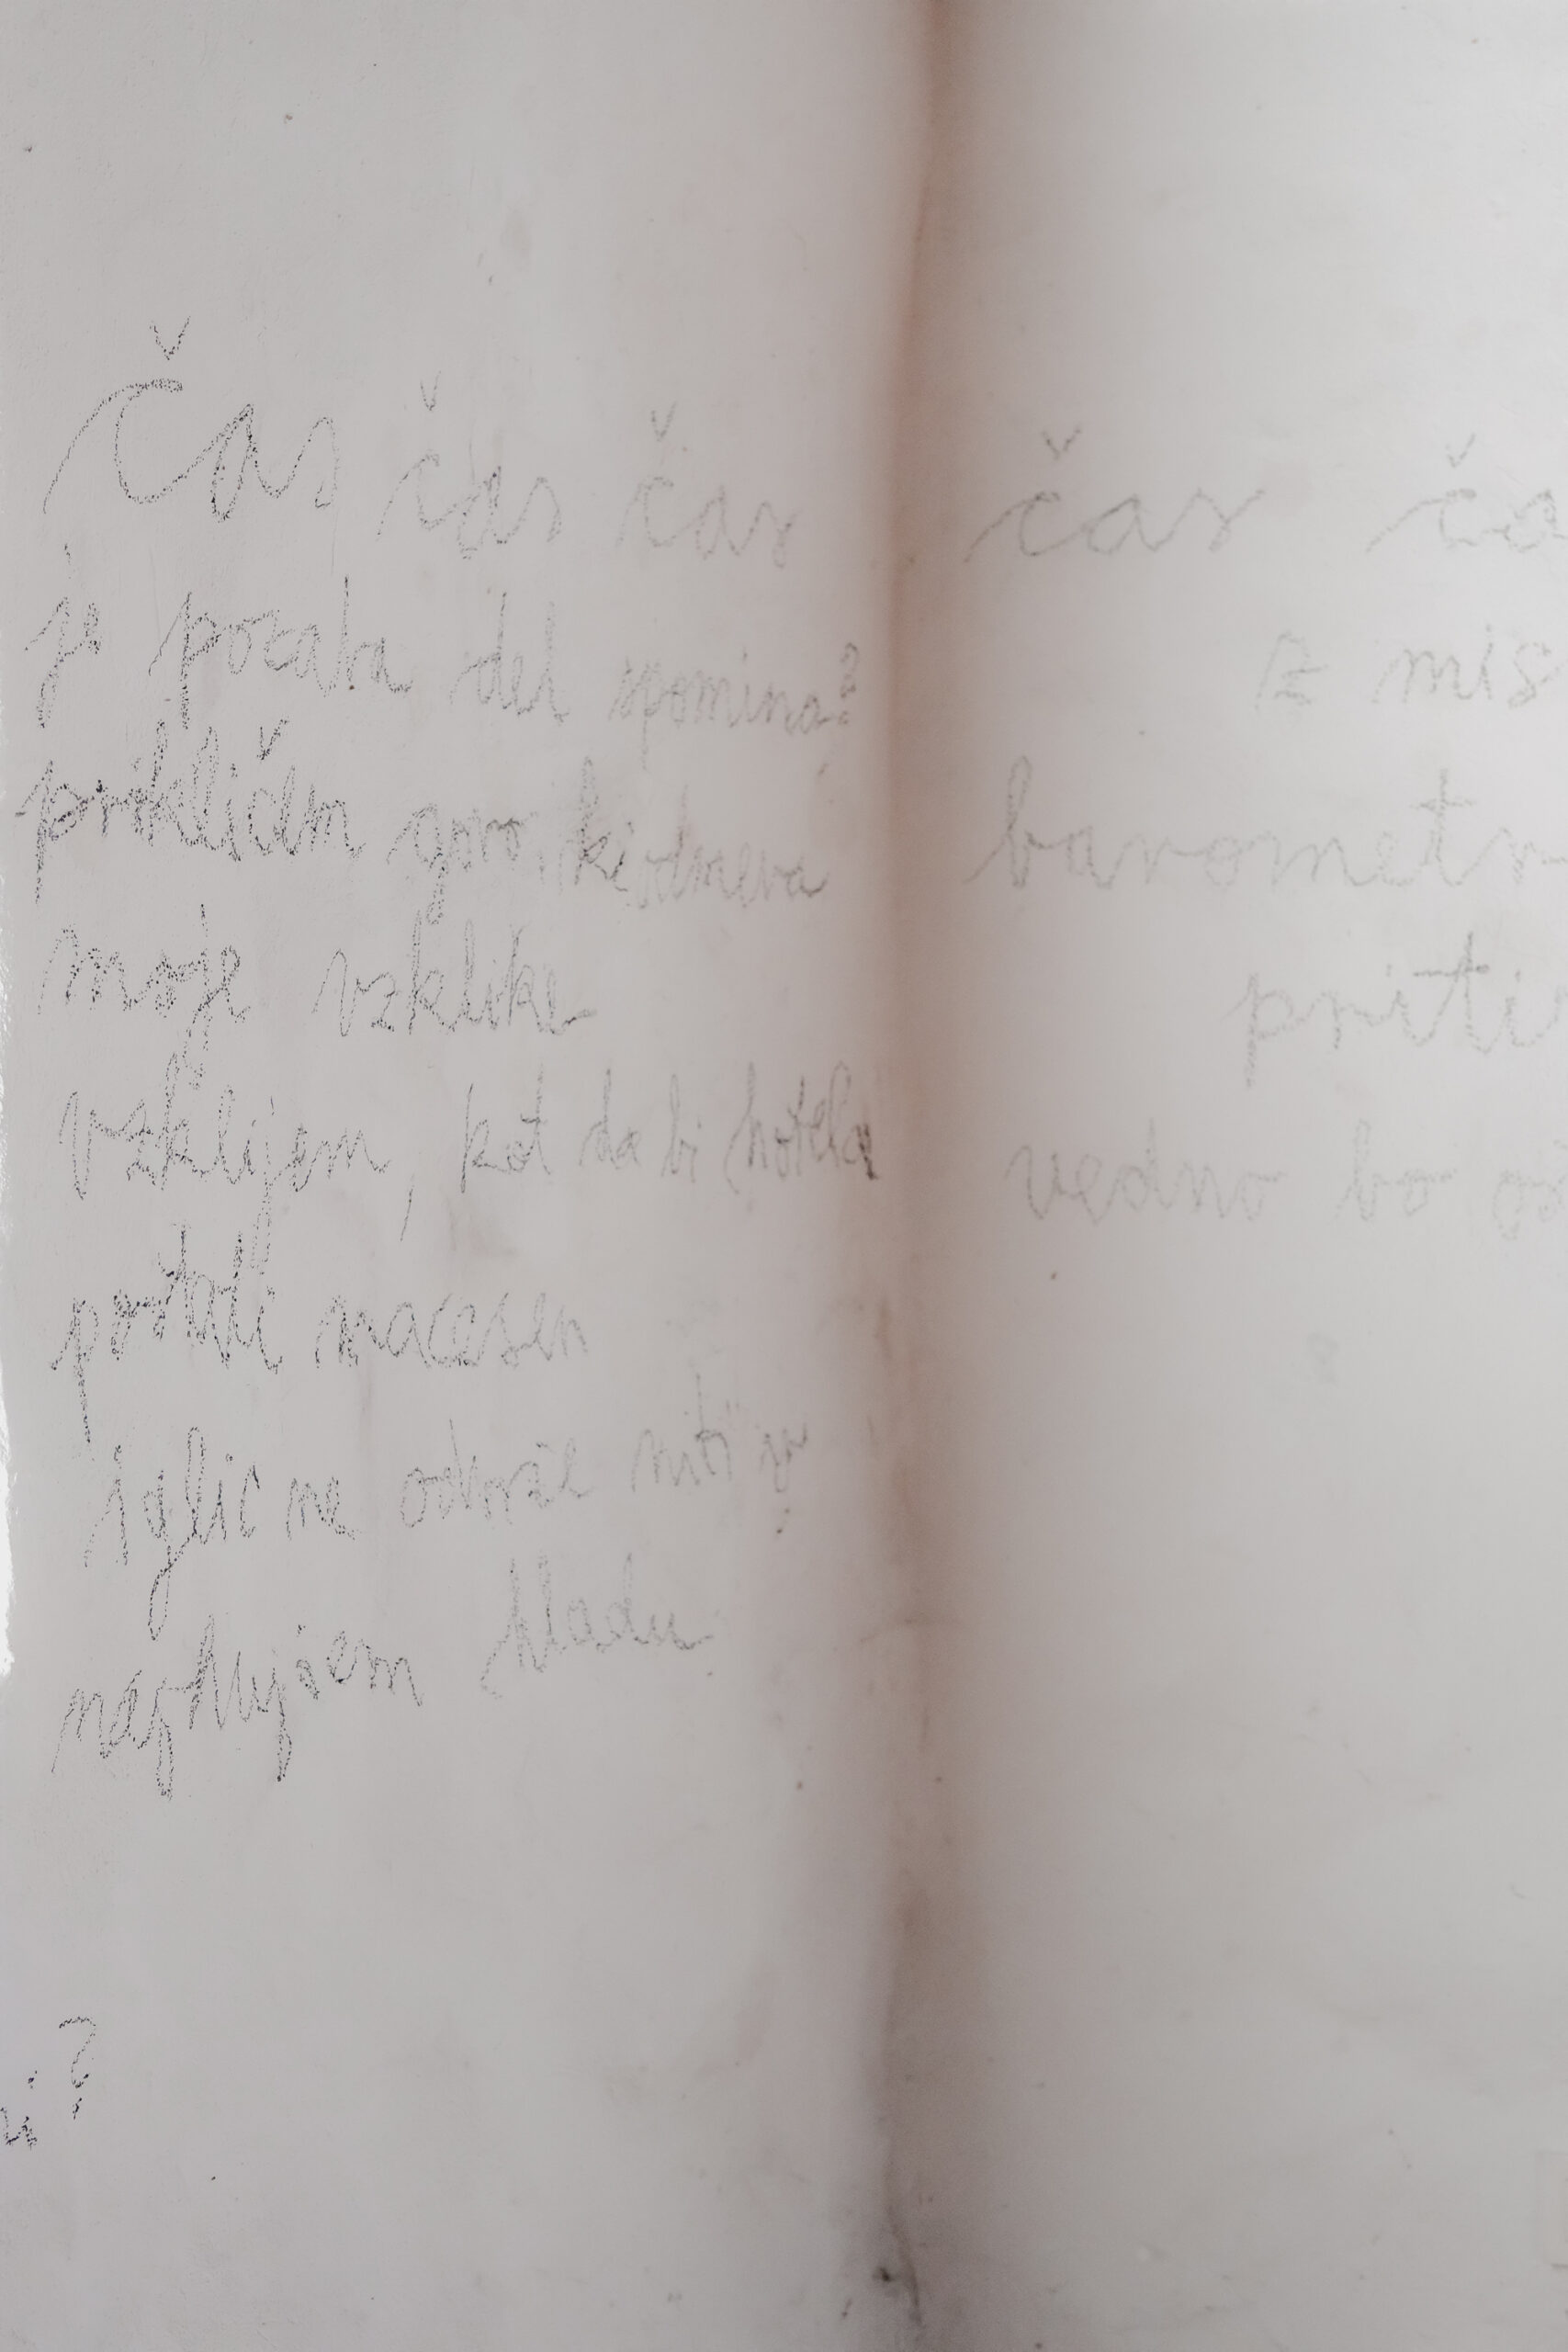 Čas čas čas čas ča
je pozaba del spomina?
prikličem goro, ki odmeva
moje vzklike
vzklijem, kot da bi hotela
postati macesen
iglic ne odvrže niti v
najhujšem hladu
z mis
barometr
priti
vedno bo
i?